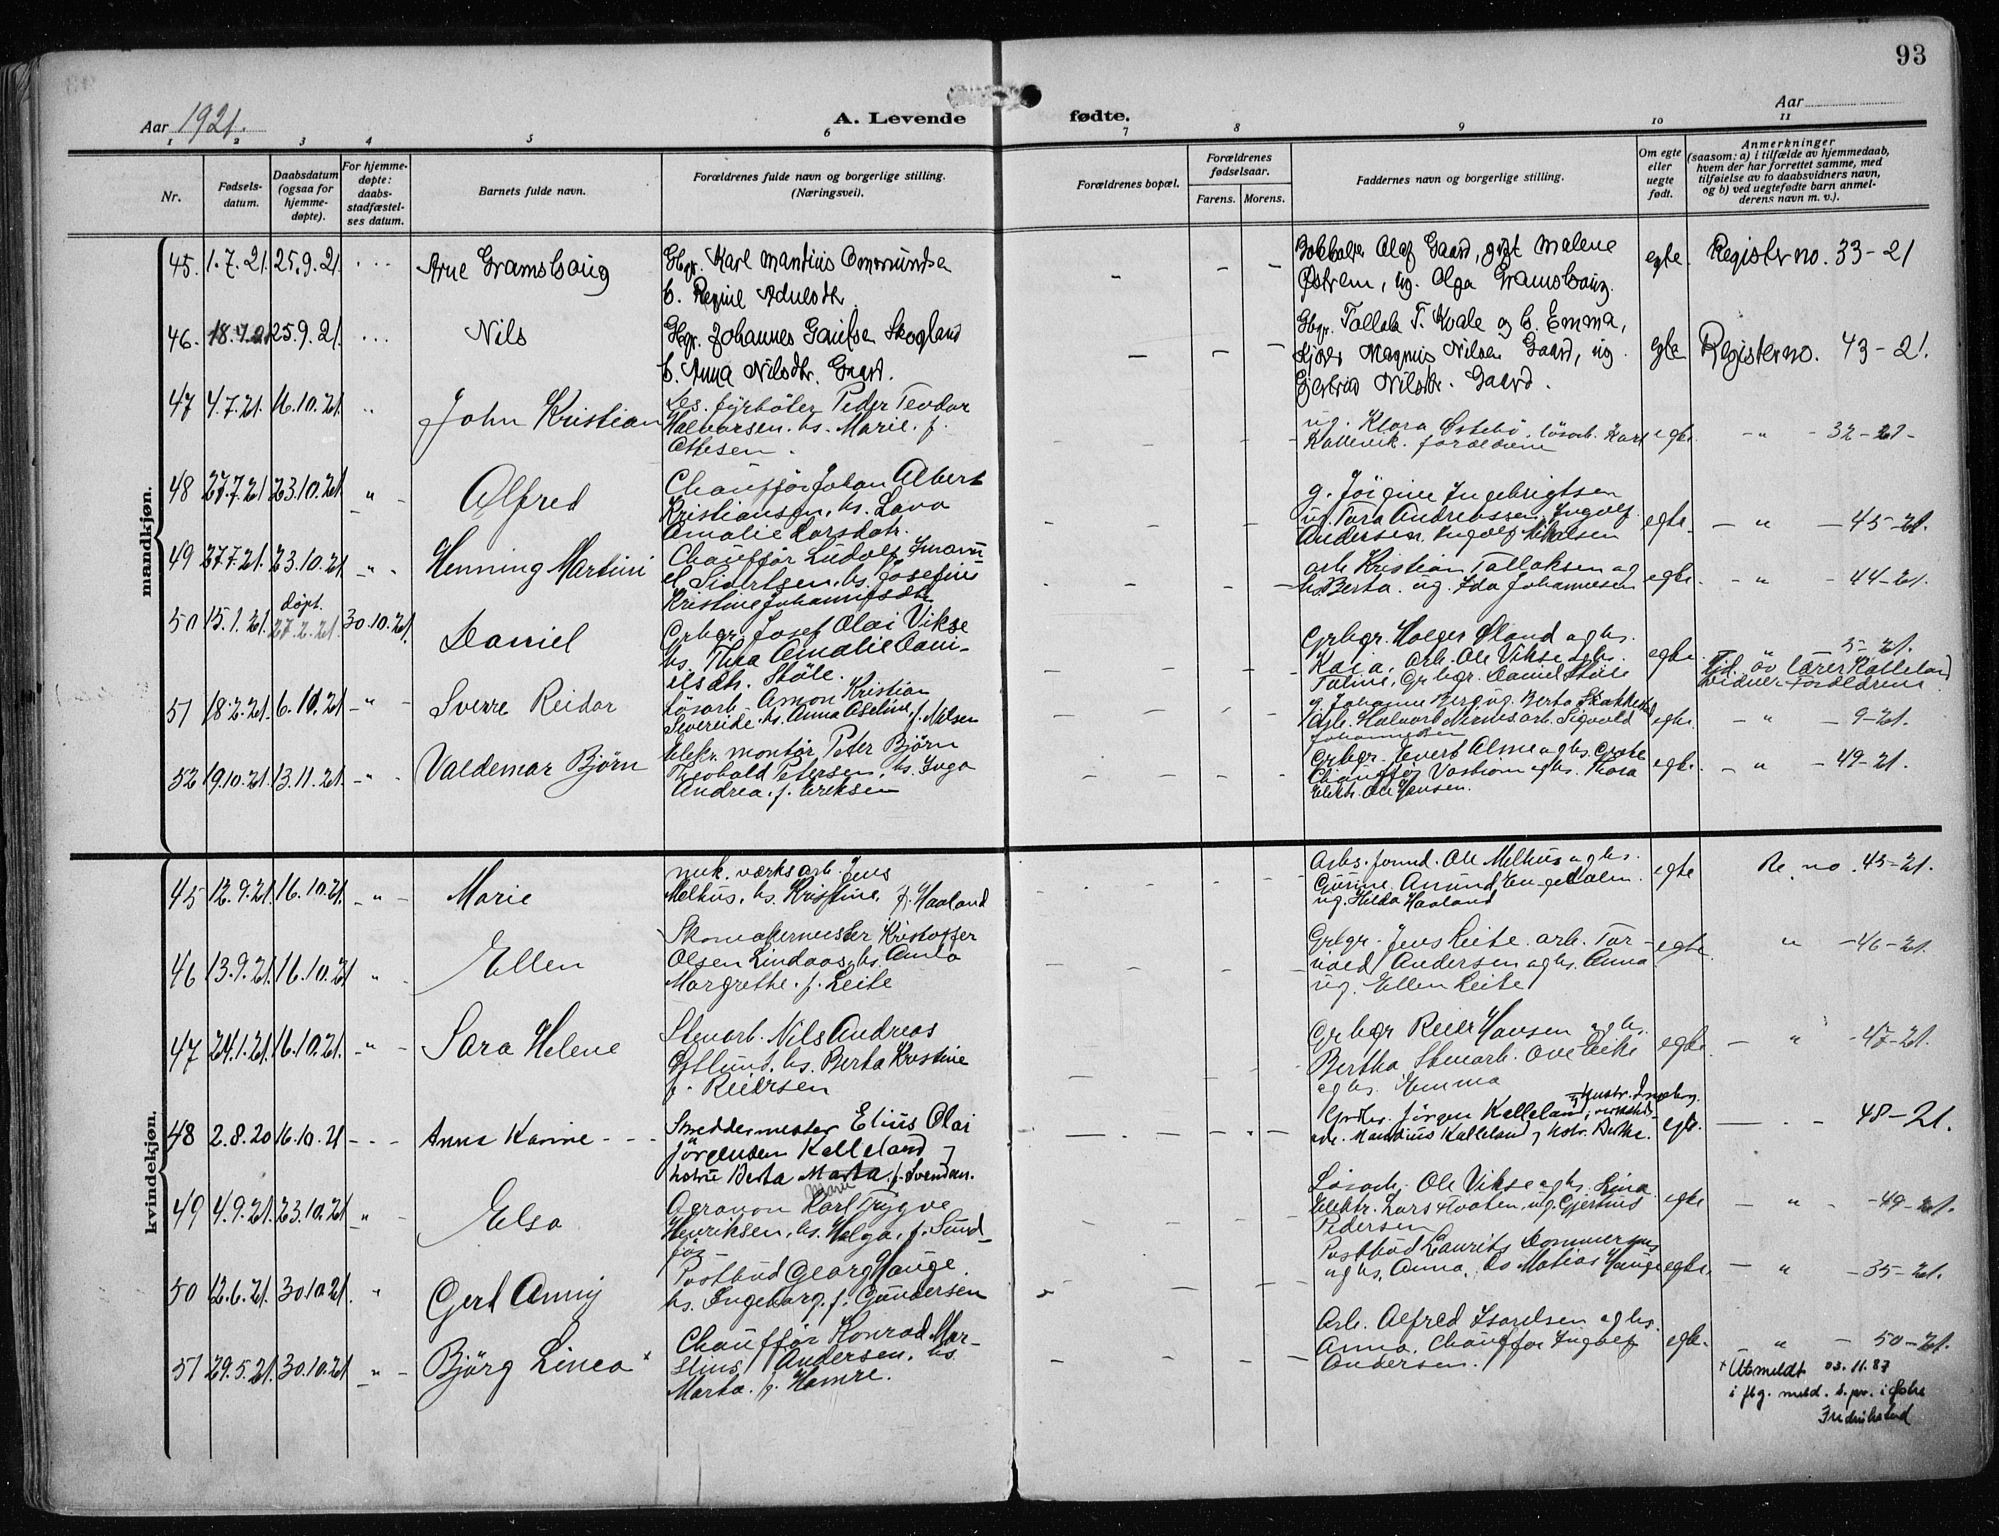 93
Aar 1921.
A. Levende fødte.
Aar
1 2 3 4 5 6 7 8 9 10 11
Nr.
Fødsels-
datum.
Daabsdatum
(ogsaa for
hjemme-
døpte).
For hjemme-
døpte:
daabs-
stadfæstel-
ses datum.
Barnets fulde navn.
Forældrenes fulde navn og borgerlige stilling.
(Næringsvei).
Forældrenes bopæl.
Forældrenes
fødselsaar.
Farens. Morens.
Faddernes navn og borgerlige stilling.
Om egte
eller
uegte
født.
Anmerkninger
(saasom: a) i tilfælde av hjemmedaab,
hvem der har forrettet samme, med
tilføielse av to daabsvidners navn,
og b) ved uegtefødte barn anmel-
derens navn m. v.).
mandkjøn.
45. 1.7.21. 25.9.21. Arne Gramshaug
Gbgr. Karl Mantius Ommundsen
h. Regine Adnesdtr.
Olaf Gaard, gift Malene
Østrem, ug. Olga Gramshaug.
egte. Register no. 33-21
46. 18.7.21 25.9.21. Nils
Gbgr. Johannes Skogland
h. Anna Nilsdtr. Gaard.
Gbgr. Tallak T. Kvale og h. Emma,
Magnus Nilsen Gaard, ug.
Gjertrud Nilsdtr. Gaard.
egte Register no. 43-21.
47 4.7.21. 16.10.21. John Kristian
Les. fyrböter Peder Teodor
Halvorsen. hs. Marie. f.
Ottesen.
ug. Klara Østebö. lösarb. Karl
Kallevik. forældrene
egte. - " - 32-21-
48 27.7.21 23.10.21 " - Alfred
Chauffør Johan Albert
Kristiansen, hs. Lava
Amalie Larsdatr.
g. Jörgine Ingebrigtsen
ug. Tara Andreassen, Ingolf
Andersen, Ingolf Mikalsen
egte. - " - 45-21.
49 27.7.21. 23.10.21. " - Henning Martini
Chauffør Ludolf
Sivertsen, hs. Josefine
Kristine Johannesdtr
arb. Kristian Tallaksen og
hs. Berta. ug. Ida Johannesen
egte - " - 44-21.
50 15.1.21. døpt. 27.2.21. 30.10.21. Daniel
Grbgr. Josef Olai Vikse
hs. Thea Amalie Dani-
elsdtr. Støle.
Grbgr. Holger Öland og hs.
Kaia, arb. Ole Vikse og hs.
Taline, Grbgr. Daniel Støle
egte. 5-21.
av lærer Kalleland
vidner Forældrene
51 18.2.21. 6.11.21 -"- Sverre Reidar
Lösarb. Amon Kristian
Sivereide. hs. Anna Aseline, f. Nilsen
g. Johanne Berg, ug. Berta
arb. Halvard Nernes arb. Sigvald
Johannesen
egte. - " - 9-21.
52 19.10.21. 13.11.21 -"- Valdemar Björn
Elekr. montör Peter Björn
Theobald Petersen, hs. Inga
Andrea. f. Eriksen
Grbgr. Evert Alme og hs. Grete
Chauffør og hs. Thora
Elektr. Ole Hansen.
egte. - " - 49-21.
kvindekjøn.
45 12.9.21. 16.10.21. -"- Marie
mek. værksarb. Jens
Melhus. hs. Kristine. f. Haaland
Arbs. formd. Ole Melhus og hs.
Gurine. Amund Engedalen.
ug. Hilda Haaland
egte Re. no. 43-21.
46 13.9.21. 16.10.21 " Ellen
Skomakermester Kristoffer
Olsen Lindaas, hs. Anna
Margrethe. f. Leite
Grbgr. Jens Leite. arb. Tor-
vald Andersen og hs. Anna
ug. Ellen Leite
egte. " - 46-21.
47 24.1.21. 16.10.21. -"- Sara Helene
Stenarb. Nils Andreas
Östlund. hs. Berta Kristine
f. Reiersen
Grbgr Reier Hansen og hs.
Bertha Stenarb. Ove Eike
og hs. Emma
egte. - " - 47-21.
48 2.8.20 16.10.21 - - - Anna Karine - - -
Smeddermester Elius Olai
Jörgensen Kalleland og
hstru Berta Marta f. Svendsen.
Grbr. Jörgen Kalleland, og hustr. Ingeborg. verksted-
arb. Mandius Kalleland og hstr. Berthe.
egte. - . - 48-21.
49 4.9.21. 23.10.21 " - Elsa
Agranon Karl Trygve
Henriksen, hs. Helga, f. Sund-
för
Lösarb. Ole Vikse og hs. Lina
Elektr. Lars Hvaten, ug. Gjertine
Pedersen
egte - " - 49-21.
50 12.6.21. 30.10.21. " Gerd Anny
Postbud Georg Hauge.
hs. Ingeborg. f. Gundersen
Postbud Laurits Sommernes
og hs. Anna. Matias Hauge
egte. - " - 35-21.
51 29.5.21. 30.10.21 -"- Björg Linea x
Chauffør Konrad Mar-
Andersen, hs.
Marta. f. Hamre.
Arb. Alfred Isaelsen og hs.
Anna. Chauffør Ingolf
Andersen.
egte. - " - 50-21.
x Utmeldt 03.11.83
i flg. meld. s. pr. i Østre
Fredrikstad